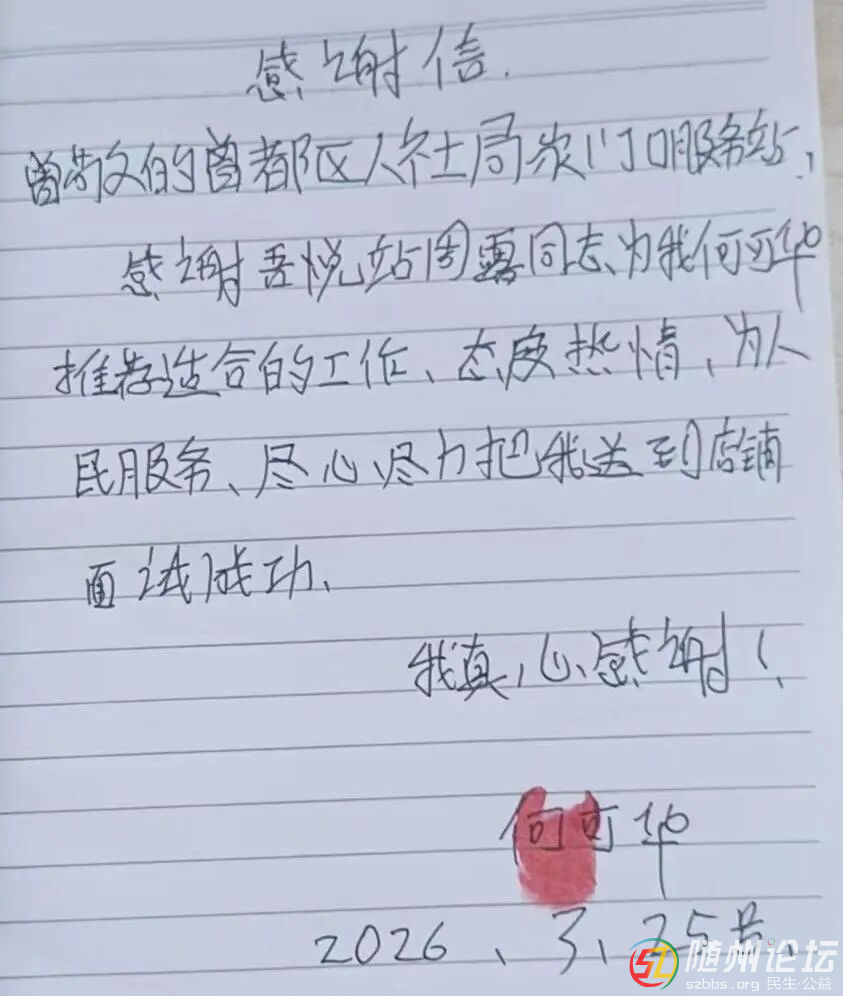 感谢信.
尊敬的曾都区人社局家门口服务站、
感谢吾悦站周露同志、为我何可华
推荐适合的工作、态度热情、为人
民服务、尽心尽力把我送到店铺
面试成功、
我真心感谢！
何可华
2026、3、25号、
随州论坛
szbbs.org 民生·公益